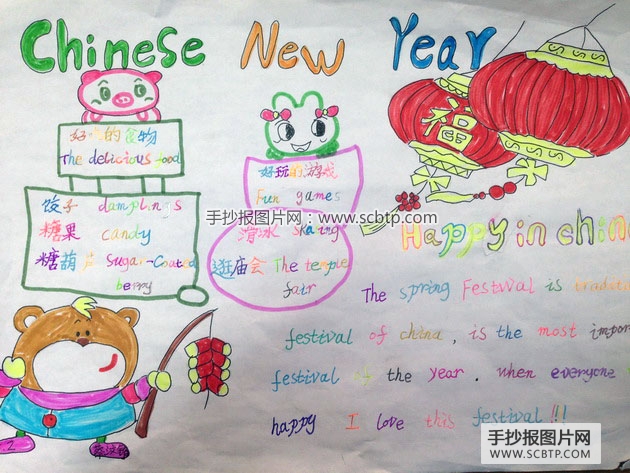 Chinese New Year
福
好吃的食物
The delicious food
饺子 damplings
糖果 candy
糖葫芦 Sugar-Coated
berry
好玩的游戏
Fun games
滑冰 skating
逛庙会 The temple
fair
手抄报图片网:www.scbtp.com
Happy in chin
The spring Festival is traditi
festival of china, is the most impor
festival of the year. when everyone
happy I love this festival!!!
手抄报图片网
WWW.SCBTP.COM